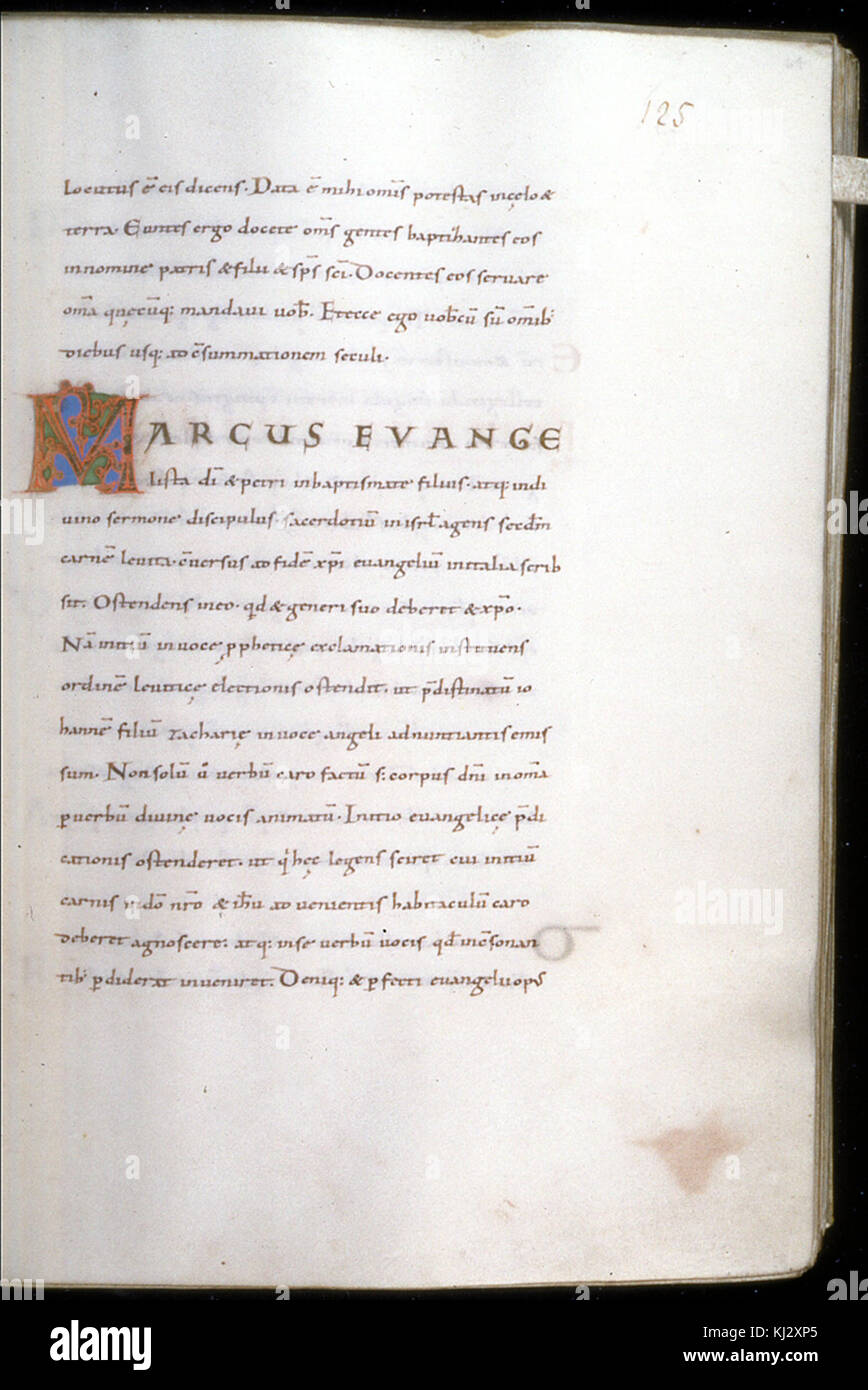 125
locutus ē eis dicens. Data ē mihi om̄is potestas in cęlo &
terra. Euntes ergo docete om̄s gentes baptizantes eos
in nomine patris & filii & sp̄s sc̄i. Docentes eos servare
om̄a quęcūq: mandavi vob̄. Et ecce ego vob̄cū sū om̄ib;
diebus usq: ad c̄summationem seculi.
MARCUS EVANGE
lista dī & petri in baptismate filius. atq: in di
vino sermone discipulus. sacerdotiū in isrl̄ agens scdm̄
carnē levita. c̄versus ad fidē xp̄i evangeliū in italia scrib
sit. Ostendens in eo. qd & generi suo deberet & xp̄o.
Nā initiū in voce p̱pheticę exclamationis instituens
ordinē leviticę electionis ostendit. ut p̄distinatū io
hannē filiū zacharię in voce angeli adnuntiantis emis
sum. Non solū ū verbū caro factū s: corpus dn̄i in om̄a
p̱ verbū divinę vocis animatū. Initio evangelicę p̄di
cationis ostenderet. ut qͥ hęc legens sciret cui initiū
carnis in dō nr̄o & ih̄u advenientis habitaculū caro
deberet agnoscere: atq: in se verbū vocis qd̄ in c̄sonan
tib; p̱diderat inveniret. Deniq: & p̱fecti evangelii op;
alamy
Image ID: KJ2XP5
www.alamy.com